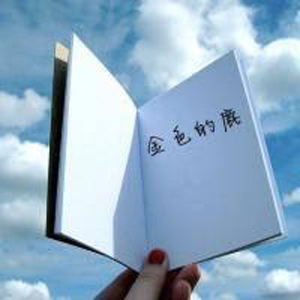 金色的鹿